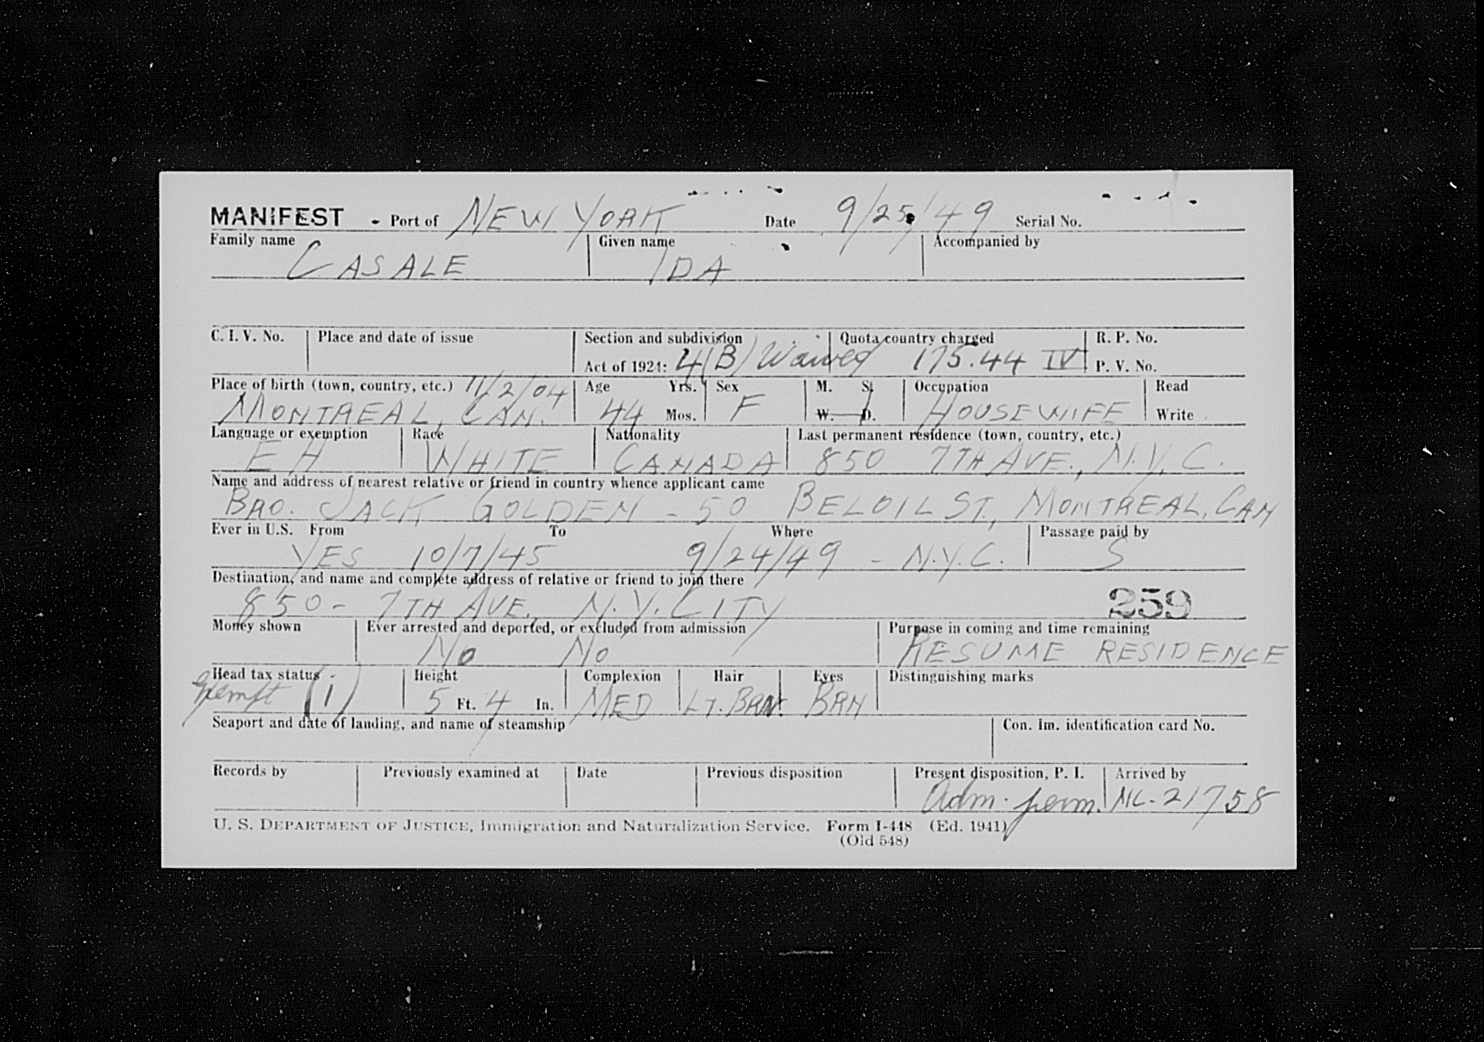 MANIFEST - Port of NEW YORK Date 9/25/49 Serial No.
Family name Given name Accompanied by
CASALE IDA
C. I. V. No. Place and date of issue Section and subdivision Quota country charged R. P. No.
Act of 1924: 4(B) Waived 175.44 IV P. V. No.
Place of birth (town, country, etc.) 11/2/04 Age Yrs. Sex M. S. Occupation Read
MONTREAL, CAN. 44 Mos. F W. D. HOUSEWIFE Write
Language or exemption Race Nationality Last permanent residence (town, country, etc.)
EH WHITE CANADA 850 7TH AVE., N.Y.C.
Name and address of nearest relative or friend in country whence applicant came
BRO. JACK GOLDEN - 50 BELOIL ST., MONTREAL, CAN
Ever in U.S. From To Where Passage paid by
YES 10/7/45 9/24/49 - N.Y.C. S
Destination, and name and complete address of relative or friend to join there
850 - 7TH AVE., N.Y. CITY 259
Money shown Ever arrested and deported, or excluded from admission Purpose in coming and time remaining
No No RESUME RESIDENCE
Head tax status Height Complexion Hair Eyes Distinguishing marks
exempt (1) 5 Ft. 4 In. MED LT. BRN. BRN
Seaport and date of landing, and name of steamship Con. Im. identification card No.
Records by Previously examined at Date Previous disposition Present disposition, P. I. Arrived by
Adm. perm. NC-21758
U. S. DEPARTMENT OF JUSTICE, Immigration and Naturalization Service. Form I-448 (Ed. 1941)
(Old 548)